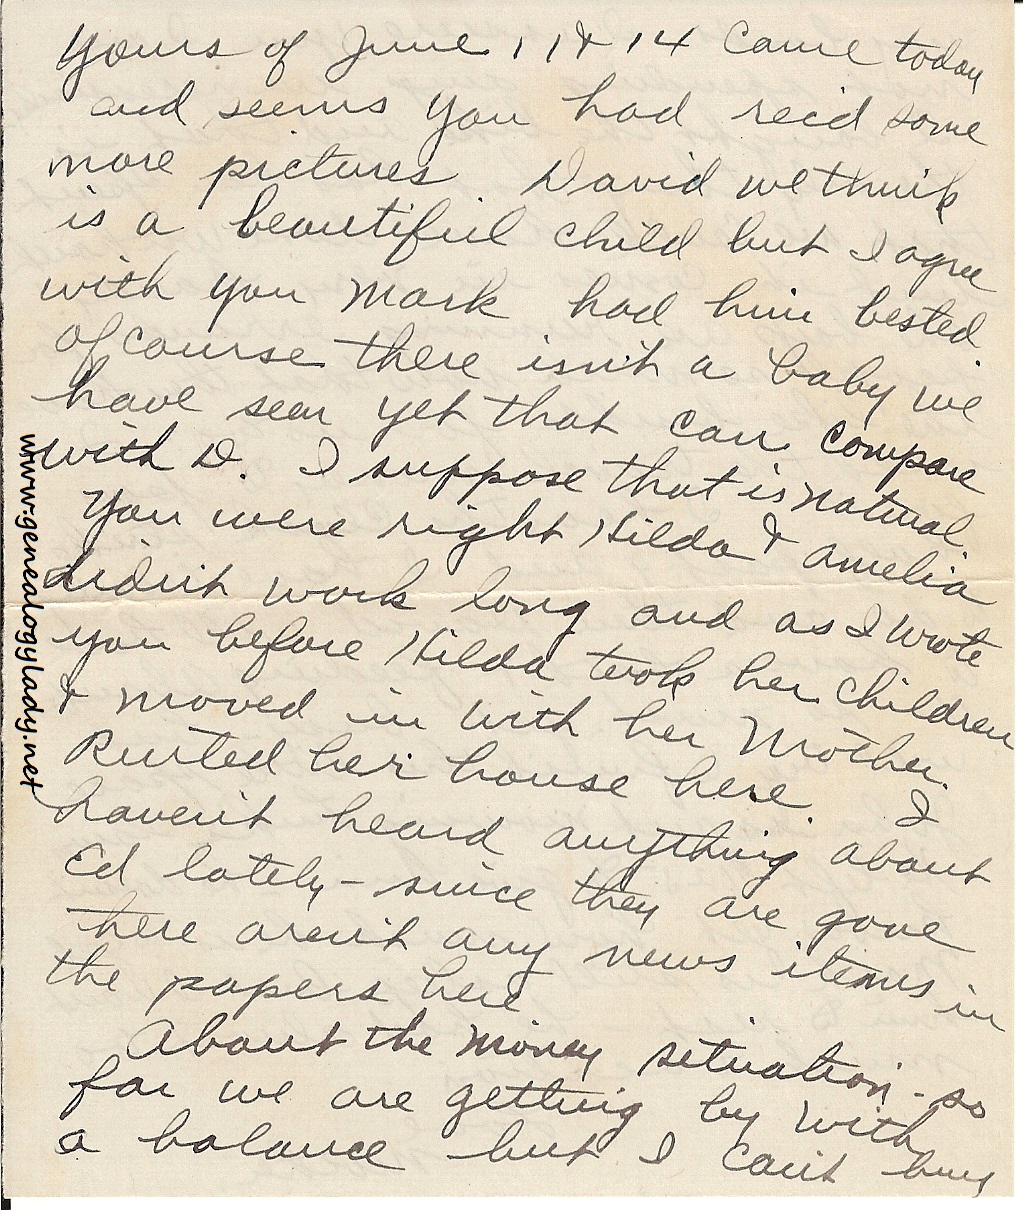 Yours of June 11 & 14 Came today
and seems you had rec'd some
more pictures David we think
is a beautiful child but I agree
with you Mark had him bested.
of course there isn't a baby we
have seen yet that can compare
with D. I suppose that is natural.
You were right Hilda & Amelia
didn't work long and as I wrote
you before Hilda took her children
& moved in with her Mother.
Rented her house here I
haven't heard anything about
Ed lately - since they are gone
there aren't any news items in
the papers here
About the money situation - so
far we are getting by with
a balance but I can't buy
www.genealogylady.net